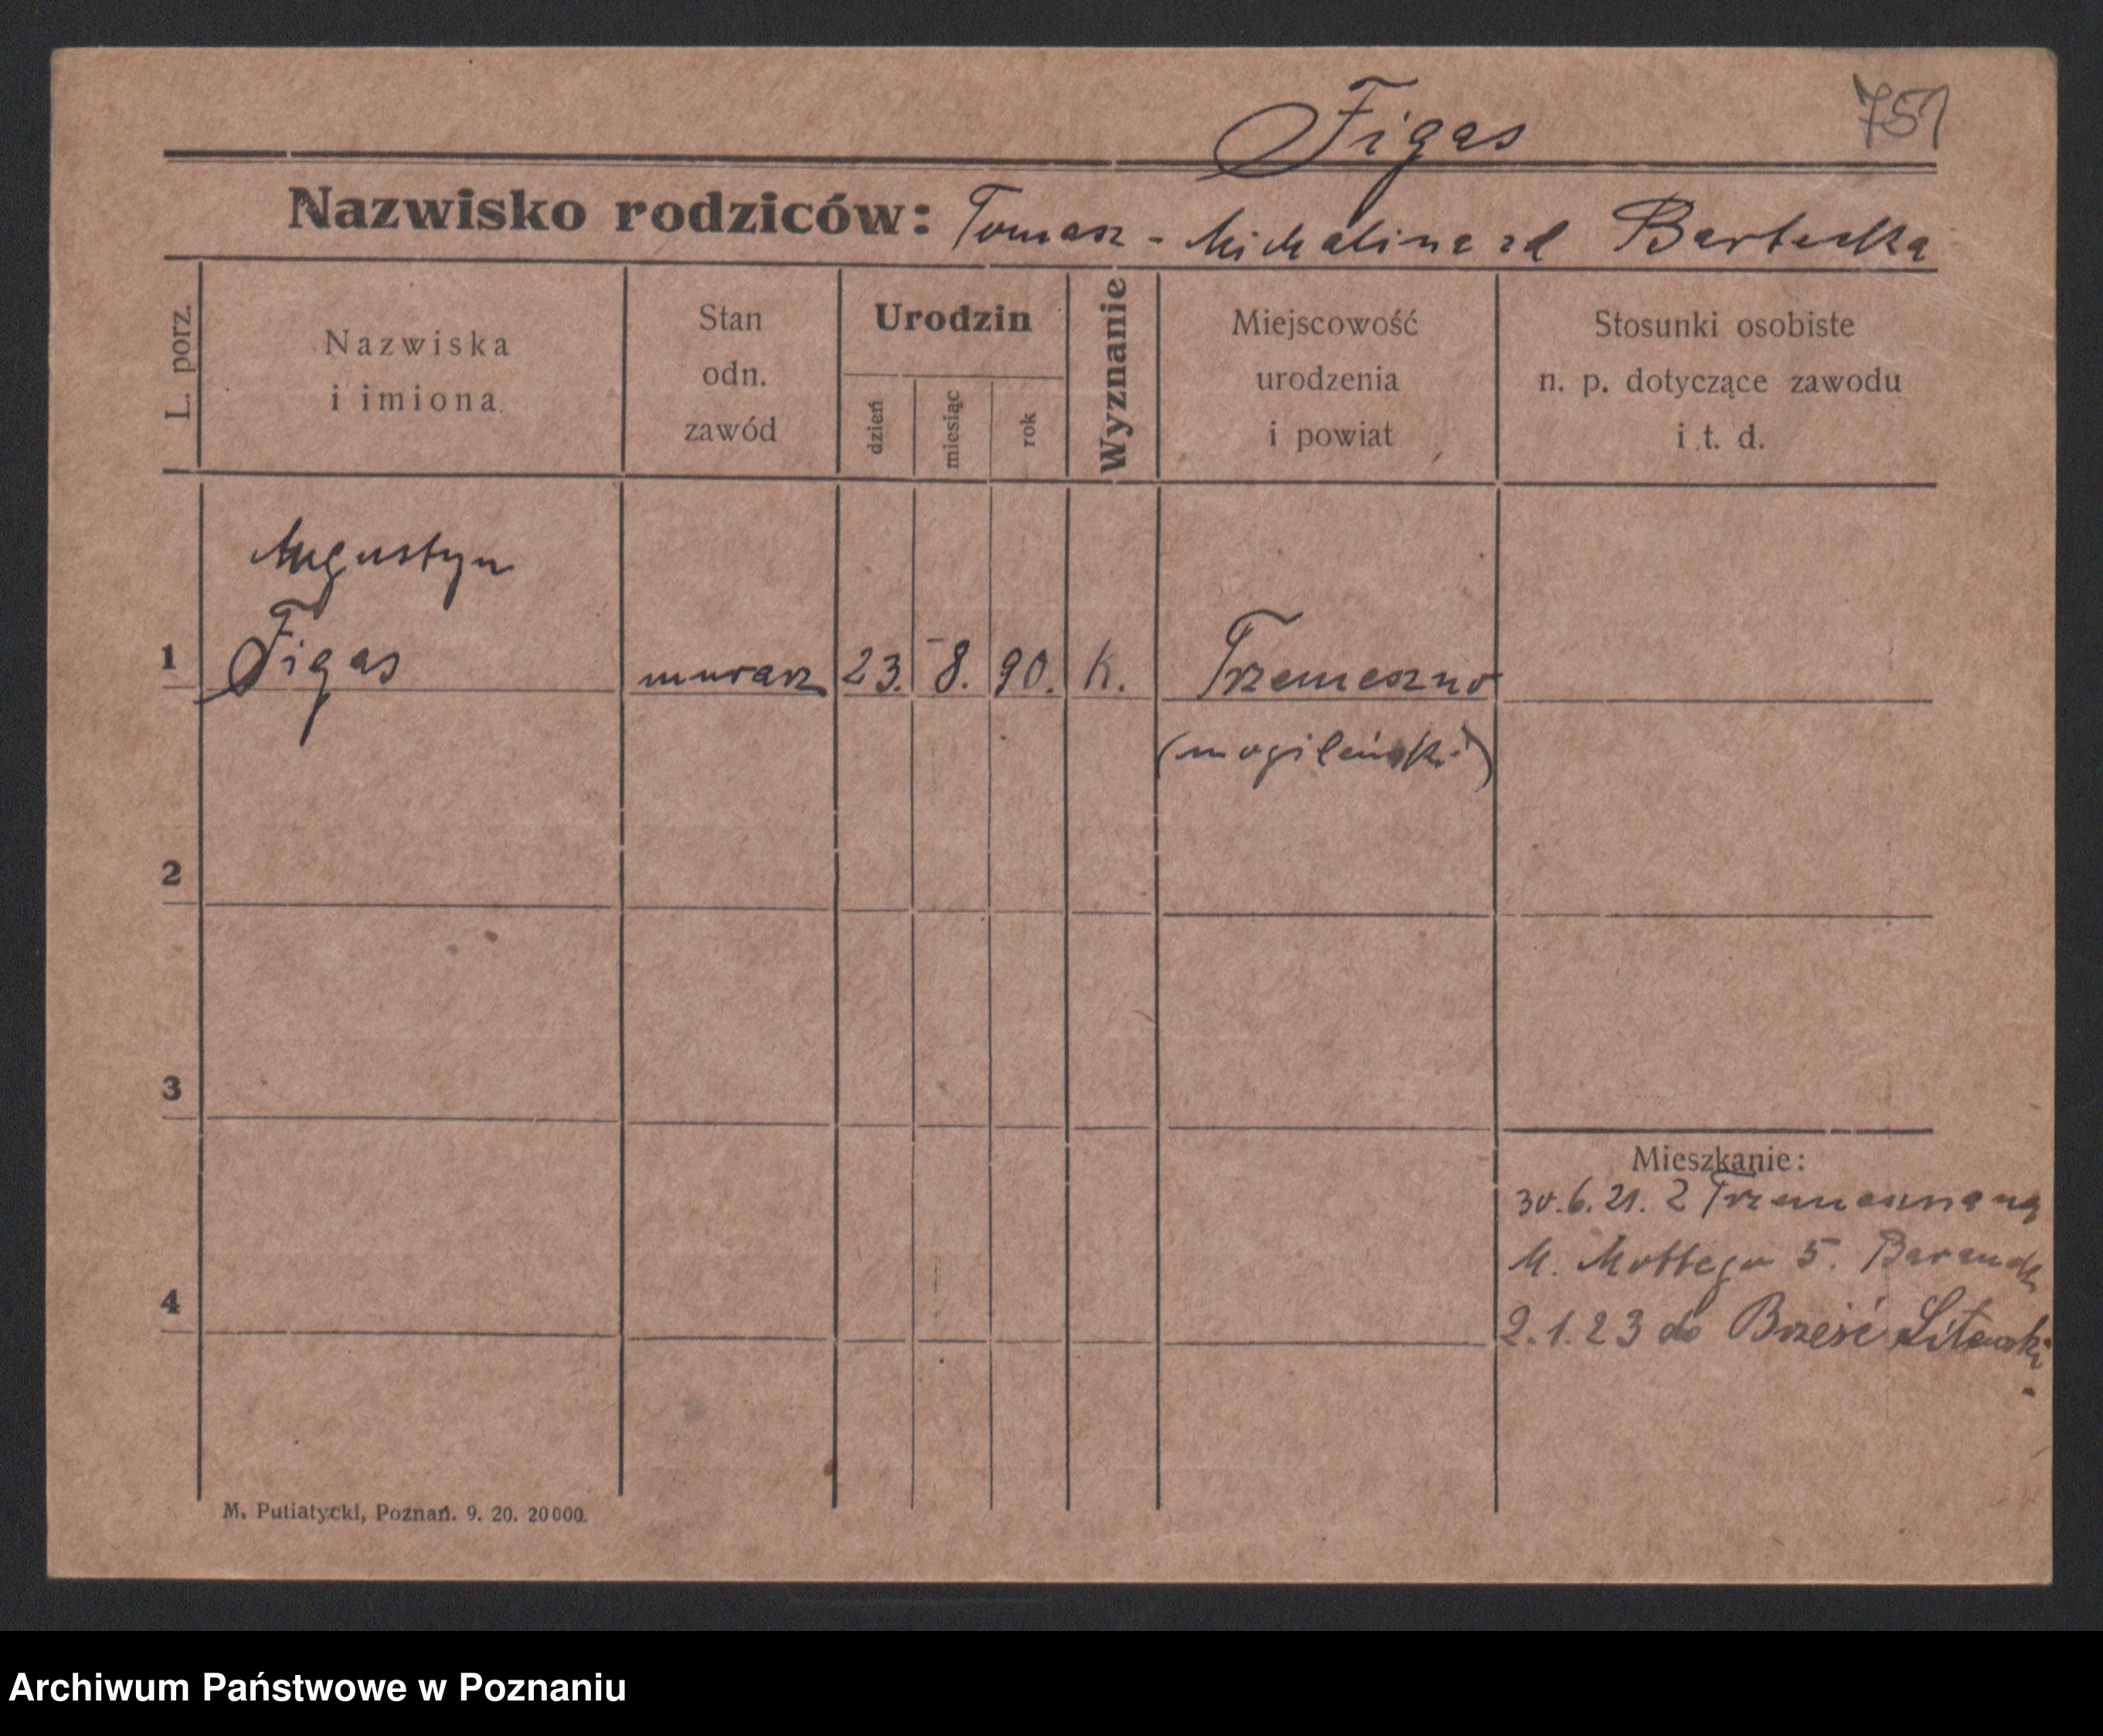 Figas
751
Nazwisko rodziców: Tomasz - Michalina zd Bartecka
L. porz.
Nazwiska
i imiona
Stan
odn.
zawód
Urodzin
dzień
miesiąc
rok
Wyznanie
Miejscowość
urodzenia
i powiat
Stosunki osobiste
n. p. dotyczące zawodu
i t. d.
Augustyn
1 Figas murarz 23. 8. 90. K. Trzemeszno
(mogileński)
2
3
Mieszkanie:
30.6.21. z Trzemeszna na
M. Mottego 5.
4
2.1.23 do Brześć Litewski.
M. Putiatycki, Poznań. 9. 20. 20000.
Archiwum Państwowe w Poznaniu